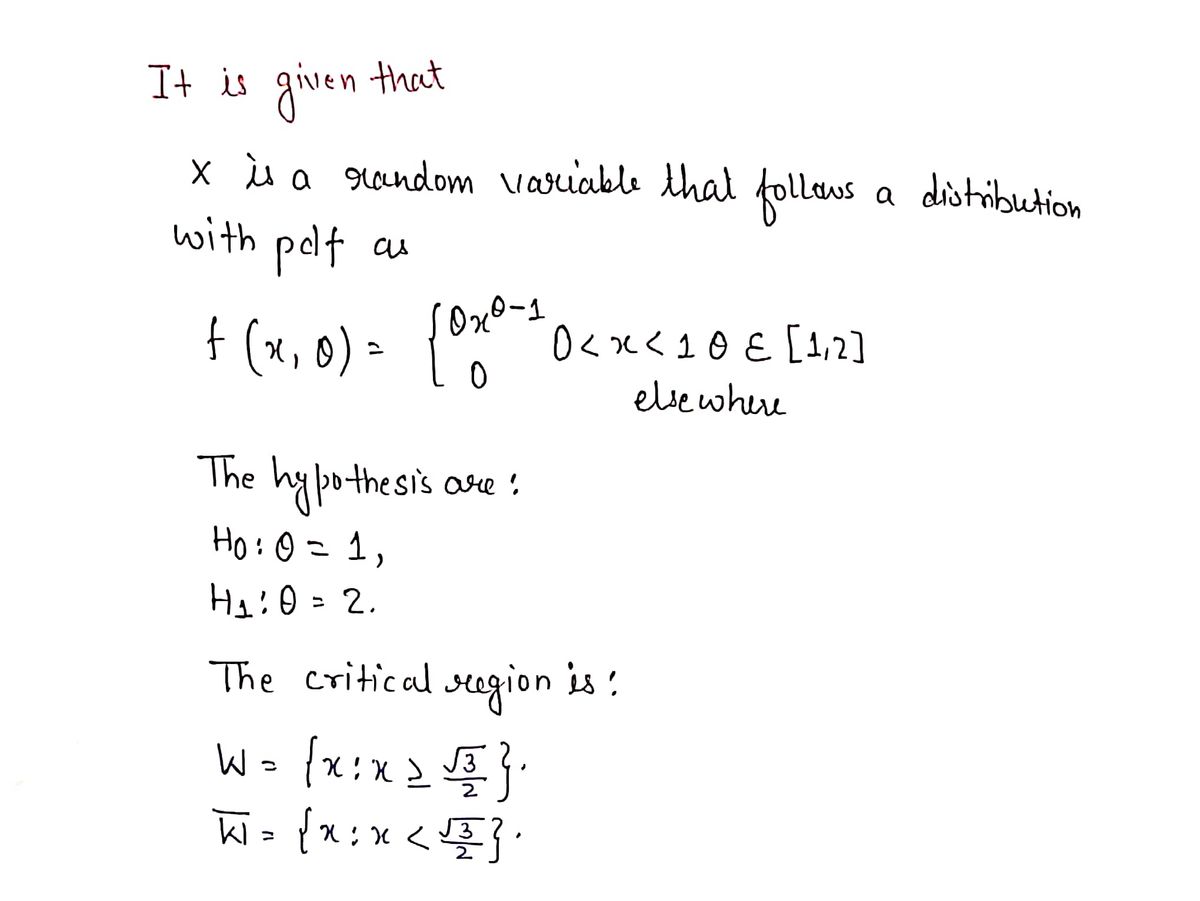 It is given that
X is a random variable that follows a distribution
with pdf as
f (x, θ) = { θx^θ-1 0 < x < 1 θ ε [1,2]
0 elsewhere
The hypothesis are :
H0 : θ = 1,
H1 : θ = 2.
The critical region is :
W = {x : x ≥ √3/2}.
W̅ = {x : x < √3/2}.